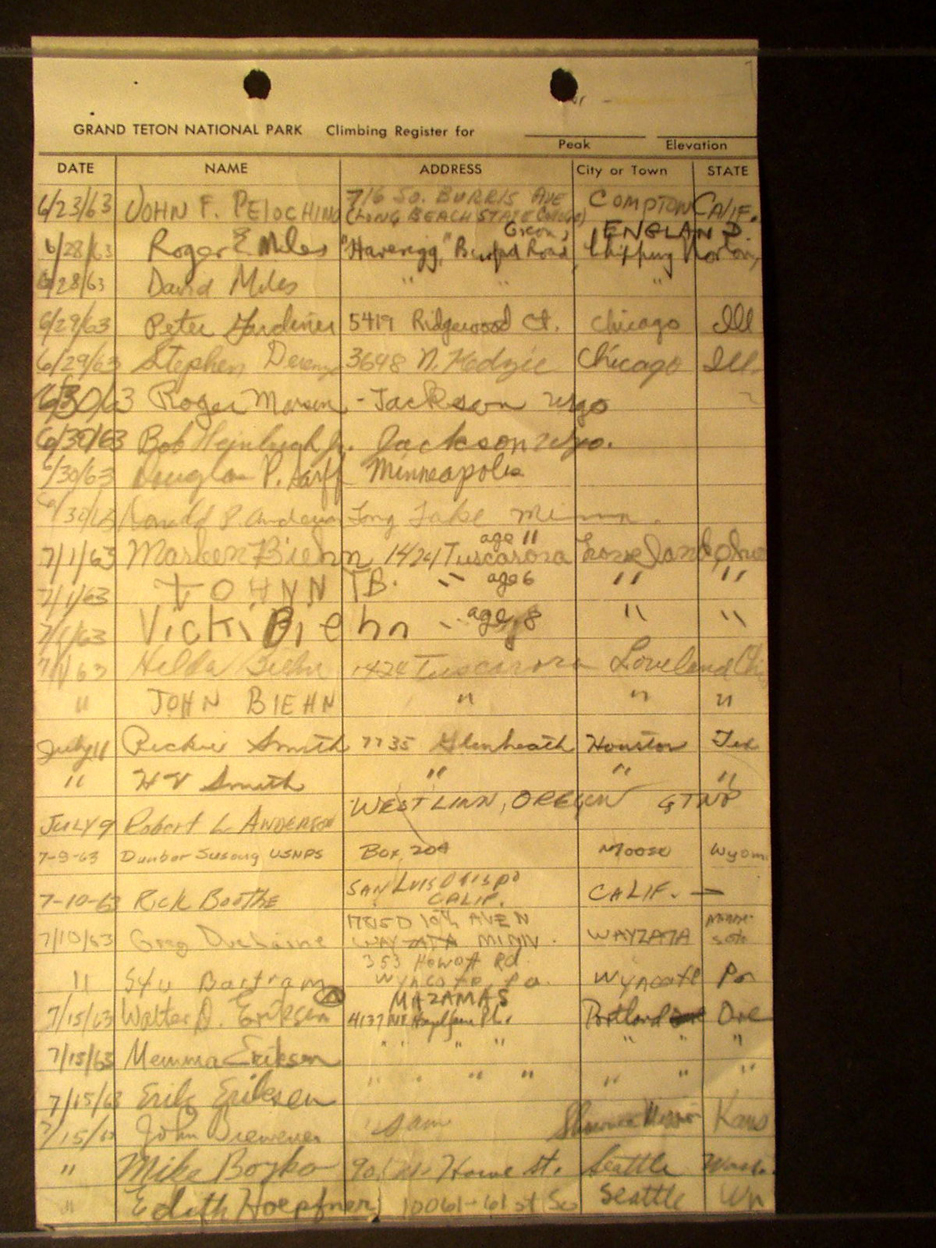 GRAND TETON NATIONAL PARK Climbing Register for
Peak Elevation
DATE NAME ADDRESS City or Town STATE
6/23/63 JOHN F. PELOCHINO 716 SO. BURRIS AVE COMPTON CALIF.
(LONG BEACH STATE COLLEGE)
Oxon, ENGLAND
6/28/63 Roger E Miles Burford Road, Chipping Norton,
6/28/63 David Miles " "
6/29/63 Peter Gardiner 5419 Ridgewood Ct. Chicago Ill
6/29/63 Stephen 3648 N. Kedzie Chicago Ill.
6/30/63 Roger - Jackson Wyo
6/30/63 Bob Jr. Jackson Wyo.
6/30/63 Douglas P. Minneapolis
6/30/63 Ronald P. Anderson Long Lake Minn.
age 11
7/1/63 Marleen Biehn 1424 Tuscarora Loveland, Ohio
7/1/63 JOHNN IB. " age 6 " "
7/1/63 Vicki Biehn " age 8 " "
7/1/63 Hilda Biehn 1424 Tuscarora Loveland Ohio
" JOHN BIEHN " " "
July 11 Rickie Smith 7735 Glenheath Houston Tex
" H V Smith " " "
WEST LINN, OREGON GTNP
JULY 9 Robert L. ANDERSON
7-9-63 Dunbar Susong USNPS Box 204 Moose Wyom.
SAN LUIS OBISPO
7-10-63 RICK BOOTHE CALIF. CALIF. —
10th AVE N
7/10/63 Greg WAYZATA MINN. WAYZATA Minne-
sota
353 Howott Rd.
" Stu Bartram Wyncote, Pa. Wyncote Pa
MAZAMAS
7/15/63 Walter D. Eriksen 4137 NE Pl. Portland Ore
7/15/63 Memma Eriksen " " " " " " "
7/15/63 Erik Eriksen " " " " " " "
7/15/63 John Diewener Sam Shawnee Mission Kans
" Mike Boyko Howe St. Seattle Wash.
" Edith Hoepfner 10061-61st So Seattle Wn